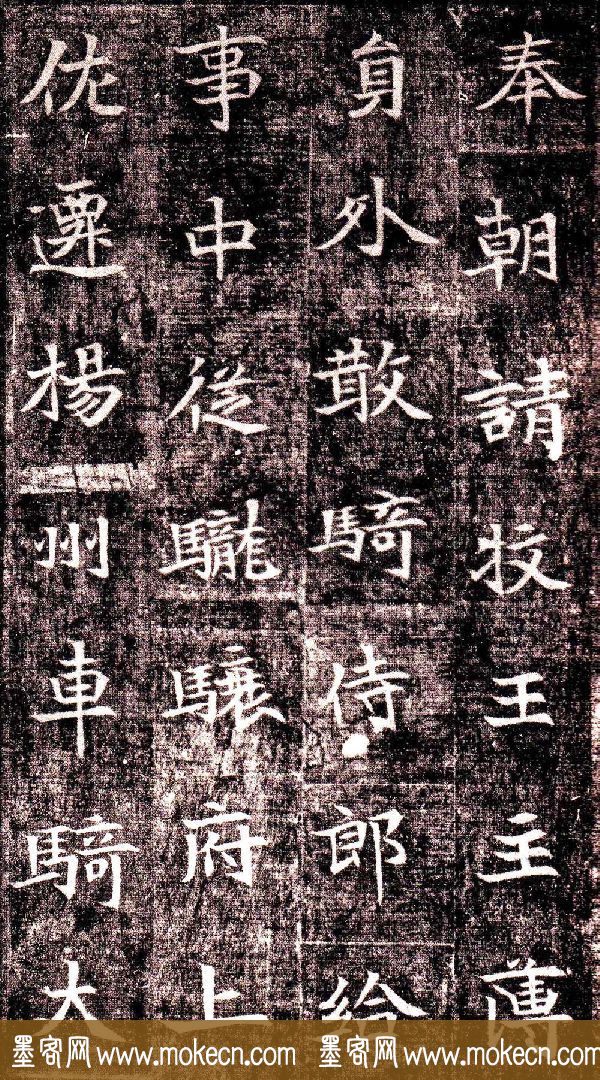 奉朝請牧王主薄
員外散騎侍郎給
事中従驡驤府上
佐遷楊州車騎大
墨客网 www.mokecn.com 墨客网 www.mokecn.com